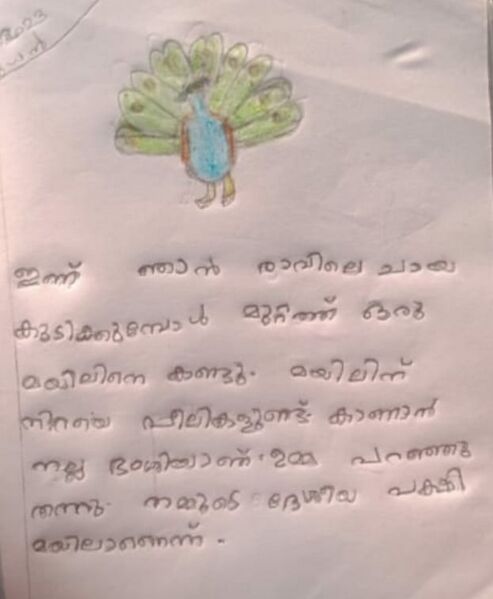 2023
ഇന്ന് ഞാൻ രാവിലെ ചായ
കുടിക്കുമ്പോൾ മുറ്റത്ത് ഒരു
മയിലിനെ കണ്ടു. മയിലിന്
നിറയെ പീലികളുണ്ട്. കാണാൻ
നല്ല ഭംഗിയാണ്. ഉമ്മ പറഞ്ഞു
തന്നു. നമ്മുടെ ദേശീയ പക്ഷി
മയിലാണെന്ന്.